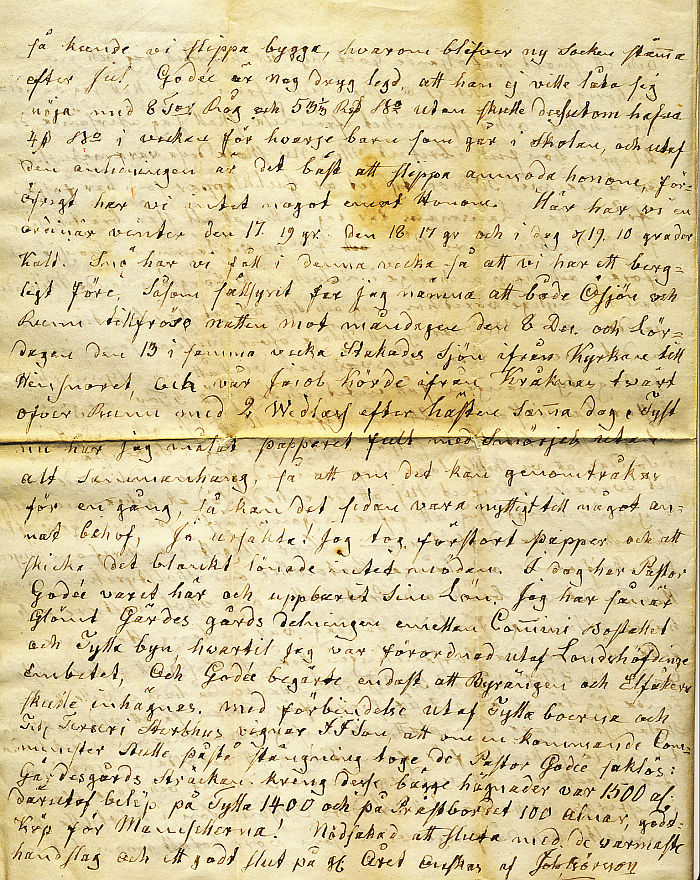 så kunde vi slippa bygga, hvarom blifver ny Socken stämma
efter Jul, Godée är nog dryg legd, att han ej ville låta sig
nöja med 8 Tnr Råg och 53⅓ Rd Bo utan skulle dessutom hafva
4 Bo i veckan för hvarje barn som går i Skolan, och utaf
den anledningen är det bäst att slippa anmoda honom, för-
öfrigt har vi intet något emot Honom. Här har vi en
ordinär vinter den 17. 19 gr. den 18 17 gr och i dag d 19. 10 grader
Kalt. Snö har vi fått i denna vecka så att vi har ett berg-
ligt före, Såsom sällsynt får jag nämna att både Ösjön och
Runn tillfrös natten mot måndagen den 8 Dec. och Lör-
dagen den 13 i samma vecka Stakades Sjön ifrån Kyrkan till
och vår Jacob körde ifrån Kråknäs tvärt
öfver Runn med 2 Wedlass efter hästen Samma dag. Tyst
nu har jag målat papperet fullt med Smörjeh utan
alt Sammanhang, så att om det kan genomtråkas
för en gång, så kan det sedan vara nyttigt till något an-
nat behof, Ja ursäkta! Jag tog förstort papper och att
skicka det blankt lönade intet mödan. I dag har Pastor
Godée varit här och uppburit Sin Lön. Jag har så när
Glömt Gärdesgårds delningen emellan Commini Bostället
och Tylla byn, hvartil jag var förordnad utaf Landshöfdinge
Embetet, Och Godée begärte endast att Byrängen och Elfåkern
skulle inhägnas. med förbindelse utaf Tylla boerna och
Sterbhus vägnar att om en kommande Com-
minister skulle påstå stängning toge de Pastor Godée saklös:
Gärdesgårds Sträckan kring desse bägge hägnader var 1500 al.
därutaf belöp på Tylla 1400 och på Prästbordet 100 alnar, godt
Köp för Menischerna! Nödsakad att sluta med de varmaste
handslag och ett godt slut på gl Året önskas af